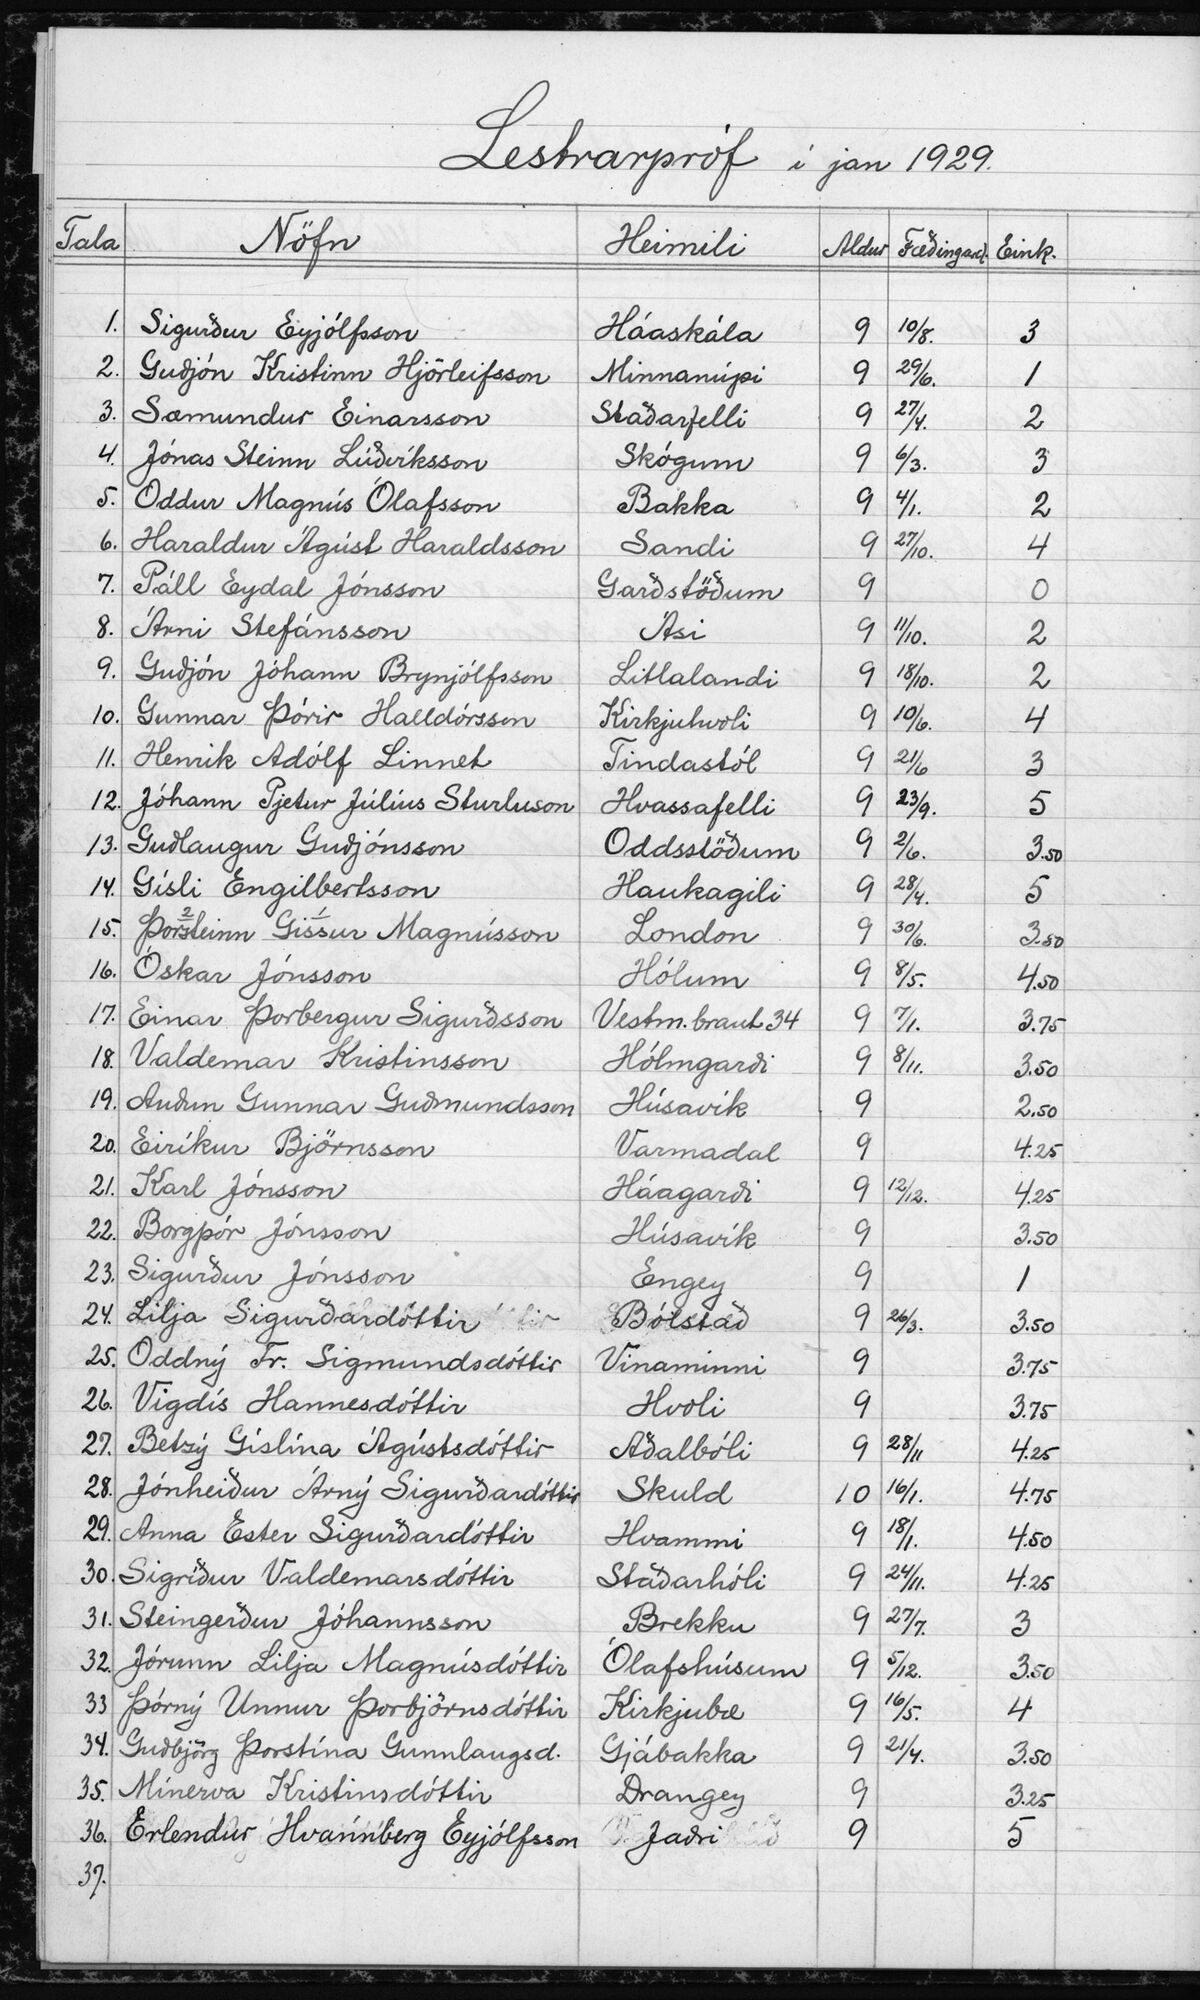 Lestrarpróf í jan 1929.
Tala Nöfn Heimili Aldur Fæðingard. Eink.
1. Sigurður Eyjólfsson Háaskála 9 10/8. 3
2. Guðjón Kristinn Hjörleifsson Minnanúpi 9 29/6. 1
3. Sæmundur Einarsson Staðarfelli 9 27/4. 2
4. Jónas Steinn Lúðvíksson Skógum 9 6/3. 3
5. Oddur Magnús Ólafsson Bakka 9 4/1. 2
6. Haraldur Ágúst Haraldsson Sandi 9 27/10. 4
7. Páll Eydal Jónsson Garðstöðum 9 0
8. Árni Stefánsson Ási 9 11/10. 2
9. Guðjón Jóhann Brynjólfsson Litlalandi 9 18/10. 2
10. Gunnar Þórir Halldórsson Kirkjuhvoli 9 10/6. 4
11. Henrik Adólf Linnet Tindastól 9 21/6 3
12. Jóhann Pjetur Júlíus Sturluson Hvassafelli 9 23/9. 5
13. Guðlaugur Guðjónsson Oddsstöðum 9 2/6. 3.50
14. Gísli Engilbertsson Haukagili 9 28/4. 5
15. Þorsteinn 2 Gissur 1 Magnússon London 9 30/6. 3.50
16. Óskar Jónsson Hólum 9 8/5. 4.50
17. Einar Þorbergur Sigurðsson Vestm.braut 34 9 7/1. 3.75
18. Valdemar Kristinsson Hólmgarði 9 8/11. 3.50
19. Auðun Gunnar Guðmundsson Húsavík 9 2.50
20. Eiríkur Björnsson Varmadal 9 4.25
21. Karl Jónsson Háagarði 9 12/12. 4.25
22. Borgþór Jónsson Húsavík 9 3.50
23. Sigurður Jónsson Engey 9 1
24. Lilja Sigurðardóttir Bólstað 9 26/3. 3.50
25. Oddný Fr. Sigmundsdóttir Vinaminni 9 3.75
26. Vigdís Hannesdóttir Hvoli 9 3.75
27. Betzý Gíslína Ágústsdóttir Aðalbóli 9 28/11 4.25
28. Jónheiður Árný Sigurðardóttir Skuld 10 16/1. 4.75
29. Anna Ester Sigurðardóttir Hvammi 9 18/1. 4.50
30. Sigríður Valdemarsdóttir Staðarhóli 9 24/11. 4.25
31. Steingerður Jóhannsson Brekku 9 27/7. 3
32. Jórunn Lilja Magnúsdóttir Ólafshúsum 9 5/12. 3.50
33 Þórný Unnur Þorbjörnsdóttir Kirkjubæ 9 16/5. 4
34. Guðbjörg Þorstína Gunnlaugsd. Gjábakka 9 21/4. 3.50
35. Mínerva Kristinsdóttir Drangey 9 3.25
36. Erlendur Hvannberg Eyjólfsson Jaðri 9 5
37.